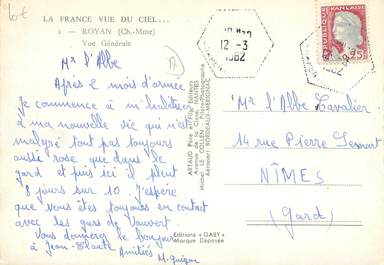 LA FRANCE VUE DU CIEL...
2 - ROYAN (Ch.-Mme)
Vue Générale
Mr l'Abbé
Après 1 mois d'armée
je commence à m'habituer
à ma nouvelle vie qui n'est
malgré tout pas toujours
aussi rose que dans le
gard et puis ici il pleut
8 jours sur 10. J'espère
que vous êtes toujours en contact
avec les gars de Vauvert
Vous donnerez le bonjour
à Jean-Claude Amitiés
ARTAUD Père et Fils, Editeurs
Avenue de la Close, NANTES
Aéroport BORDEAUX-MERIGNAC
Editions "GABY"
Marque Déposée
12-3
1962
REPUBLIQUE FRANÇAISE
0,25
1962
Mr l'Abbé Cavalier
14 rue Pierre
NÎMES
(Gard)